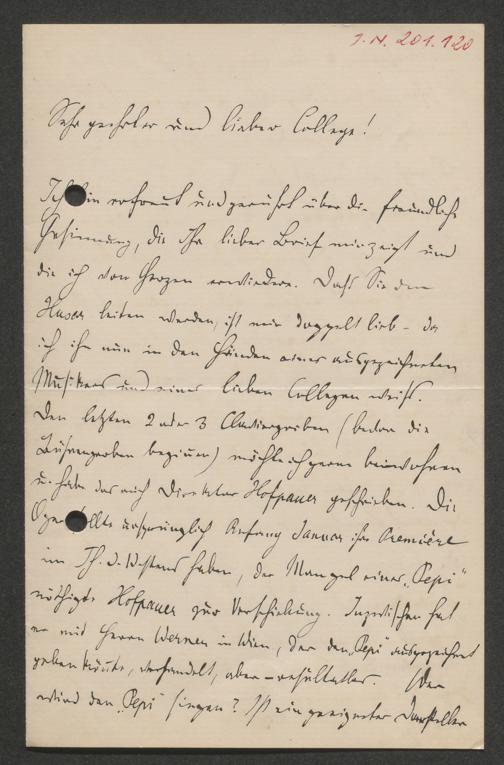 I. N. 201.120
Sehr geehrter und lieber College!
Ich bin erfreut und gerührt über die freundliche
Gesinnung, die Ihr lieber Brief mir zeigt und
die ich von Herzen erwiedere. Dass Sie den
Husar leiten werden, ist mir doppelt lieb – da
ich ihn nun in den Händen eines ausgezeichneten
Musikers und eines lieben Collegen weiss.
Den letzten 2 oder 3 Clavierproben (bevor die
Bühnenproben beginnen) möchte ich gerne beiwohnen
u. habe das auch Direktor Hofpauer geschrieben. Die
Oper sollte ursprünglich Anfang Januar ihre Première
im Th. d. Westens haben, der Mangel eines „Pepi"
nöthigte Hofpauer zur Verschiebung. Inzwischen hat
er mit Herrn Werner in Wien, der den „Pepi" ausgezeichnet
geben könnte, verhandelt, aber – resultatlos. Wer
wird den „Pepi" singen? Ist ein geeigneter Darsteller